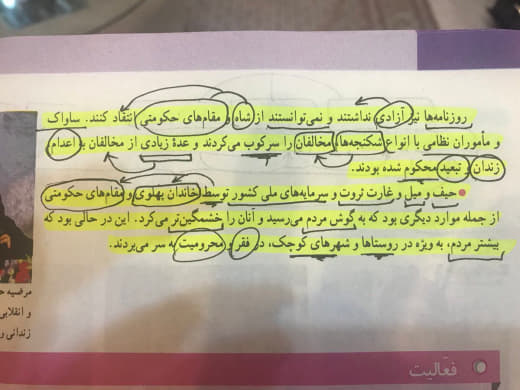 روزنامه‌ها نیز آزادی نداشتند و نمی‌توانستند از شاه و مقام‌های حکومتی انتقاد کنند. ساواک
و مأموران نظامی با انواع شکنجه‌ها مخالفان را سرکوب می‌کردند و عدهٔ زیادی از مخالفان به اعدام،
زندان و تبعید محکوم شده بودند.
● حیف و میل و غارت ثروت و سرمایه‌های ملی کشور توسط خاندان پهلوی و مقام‌های حکومتی
از جمله موارد دیگری بود که به گوش مردم می‌رسید و آنان را خشمگین‌تر می‌کرد. این در حالی بود که
بیشتر مردم، به ویژه در روستاها و شهرهای کوچک، در فقر و محرومیت به سر می‌بردند.
مرضیه
و انقلابی
زندانی و
فعالیت